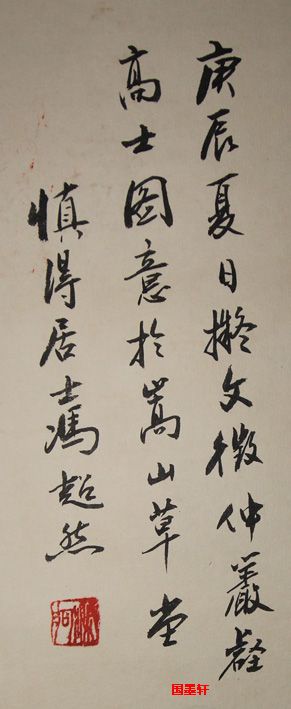 庚辰夏日擬文徵仲巖壑
高士圖意於嵩山草堂
慎得居士馮超然
国墨轩